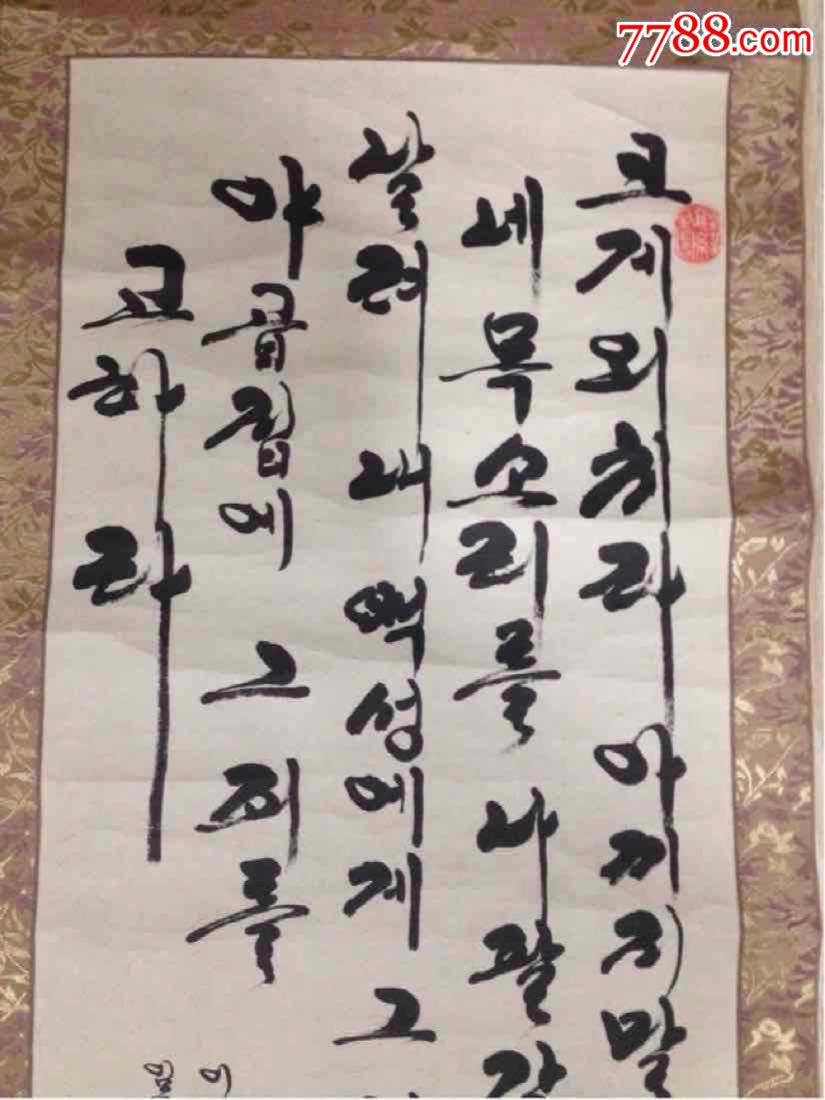 7788.com
크게 외치라 아끼지 말
네 목소리를 나팔 같
날려 내 백성에게 그
야곱 집에 그 죄를
고하라